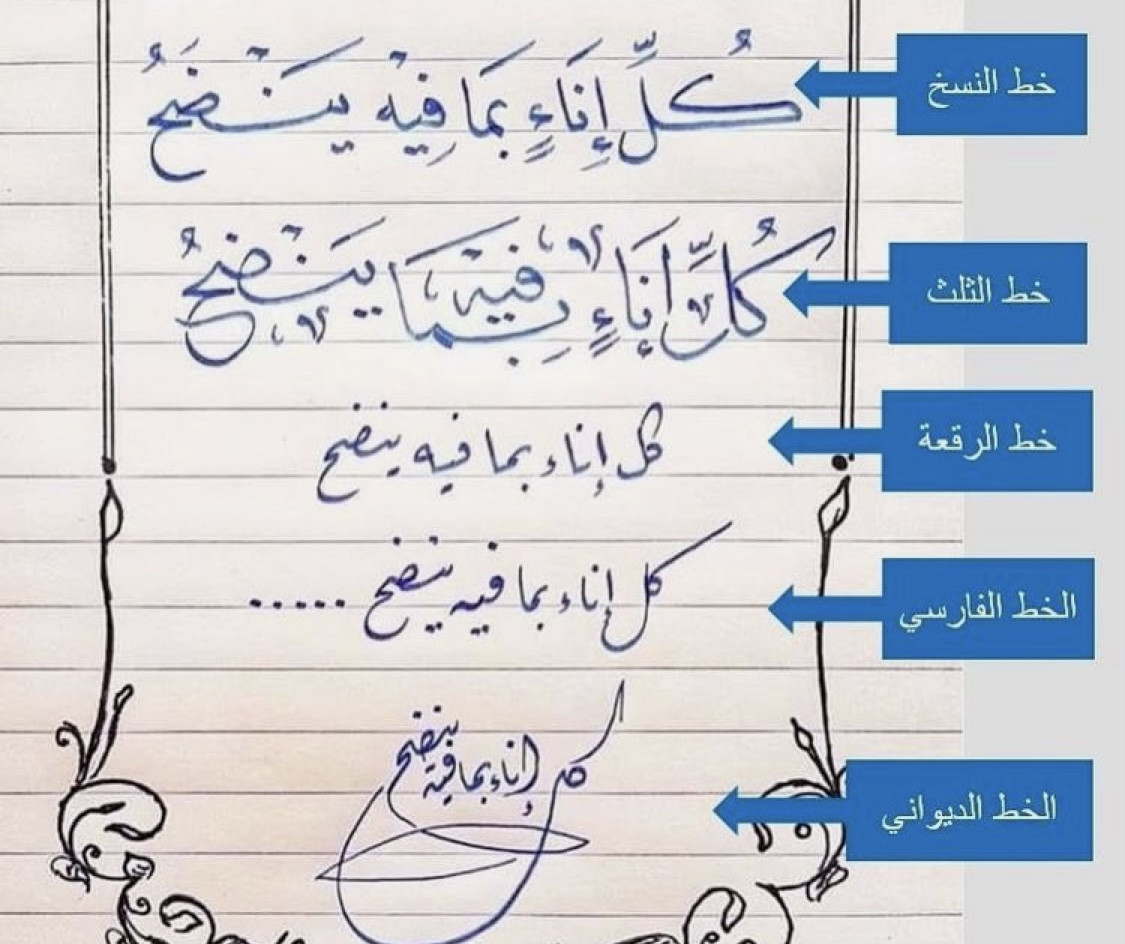 كُلُّ إِنَاءٍ بِمَا فِيْهِ يَنْضَحُ
خط النسخ
كُلُّ إِنَاءٍ بِمَا فِيْهِ يَنْضَحُ
خط الثلث
كل إناء بما فيه ينضح
خط الرقعة
كل إناء بما فيه ينضح .....
الخط الفارسي
كل إناء بما فيه ينضح
الخط الديواني